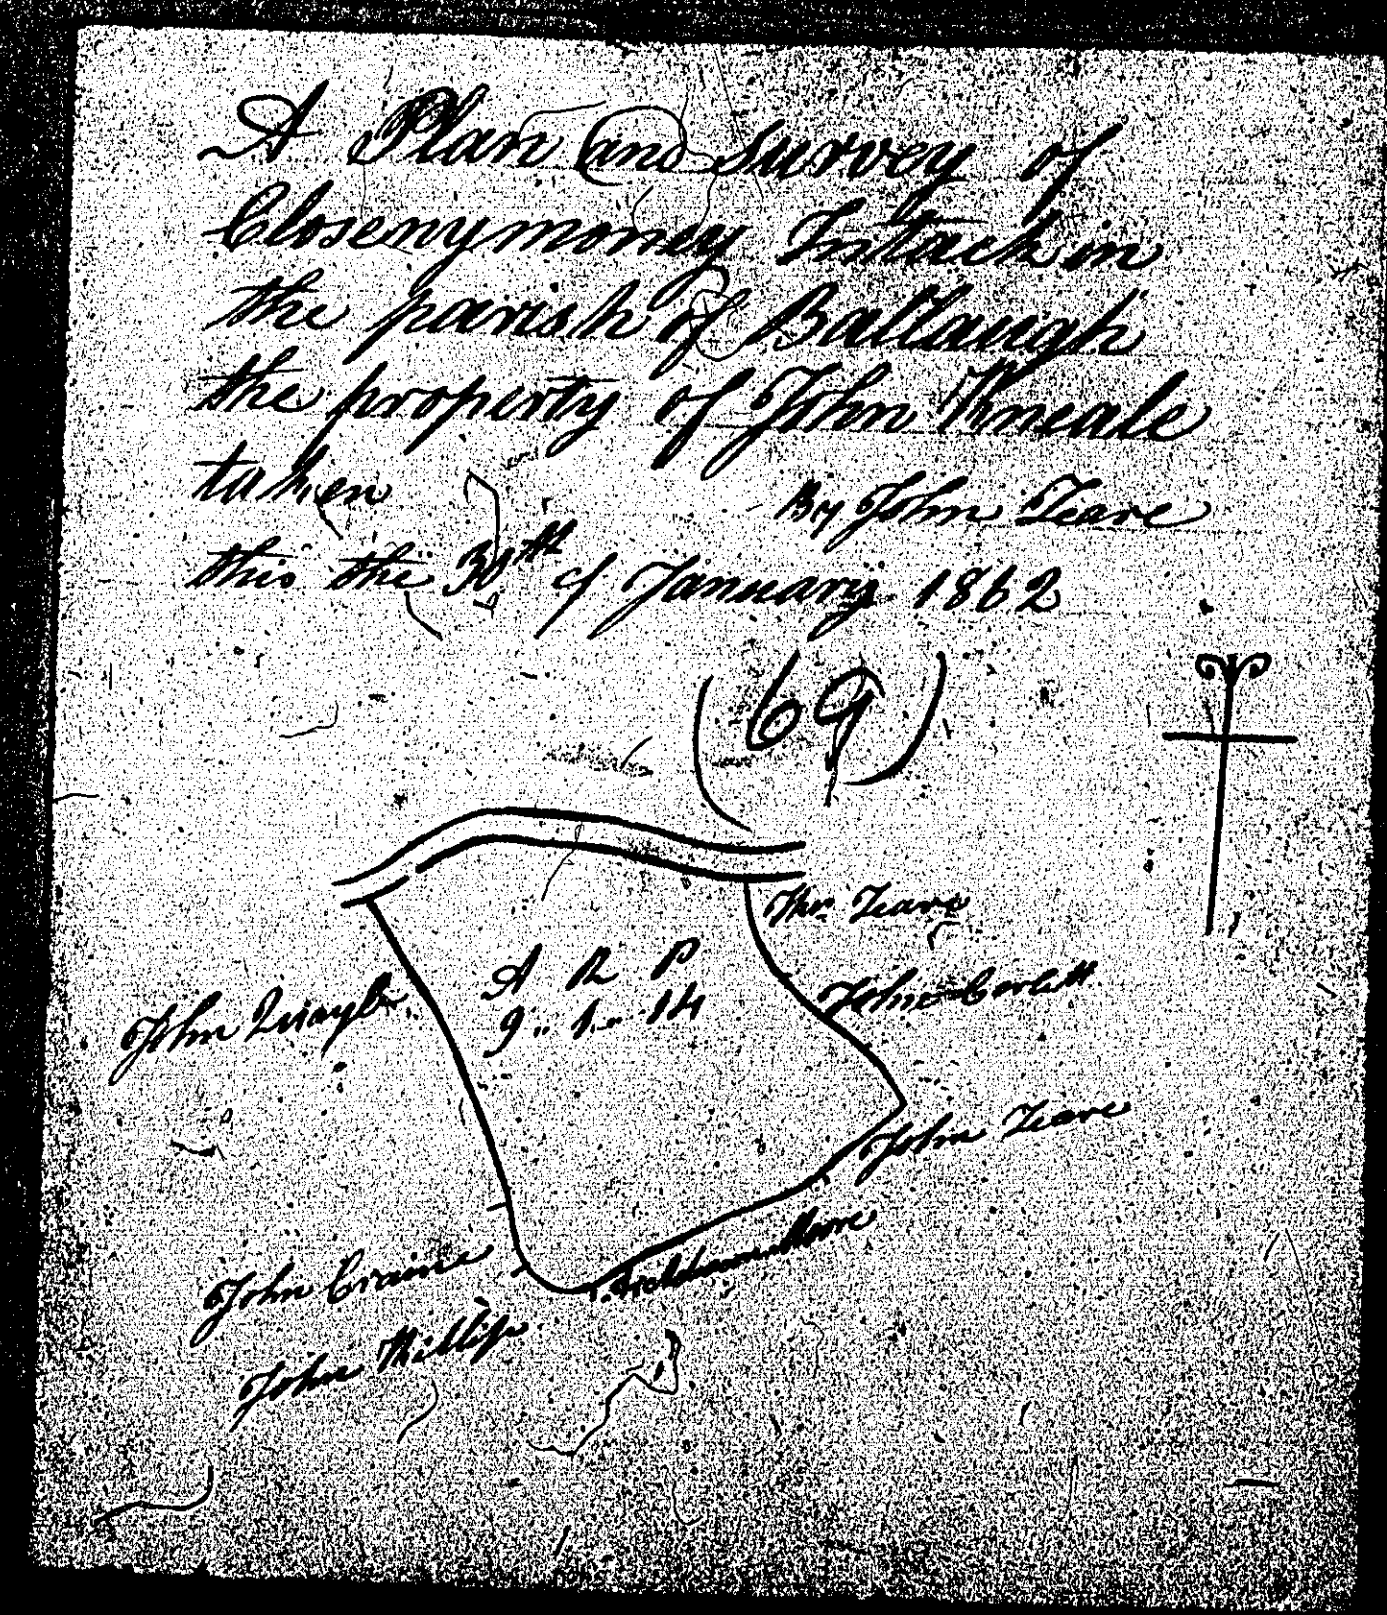 A Plan and survey of
Closenymoney Intack in
the parish of Ballaugh
the property of John Kneale
taken By John Teare
this the 30th of January 1862
(69)
Thos Teare
A R P
9.. 1.. 14
John Corlett
John Quayle
John Teare
Moore
John Craine
John Phillip